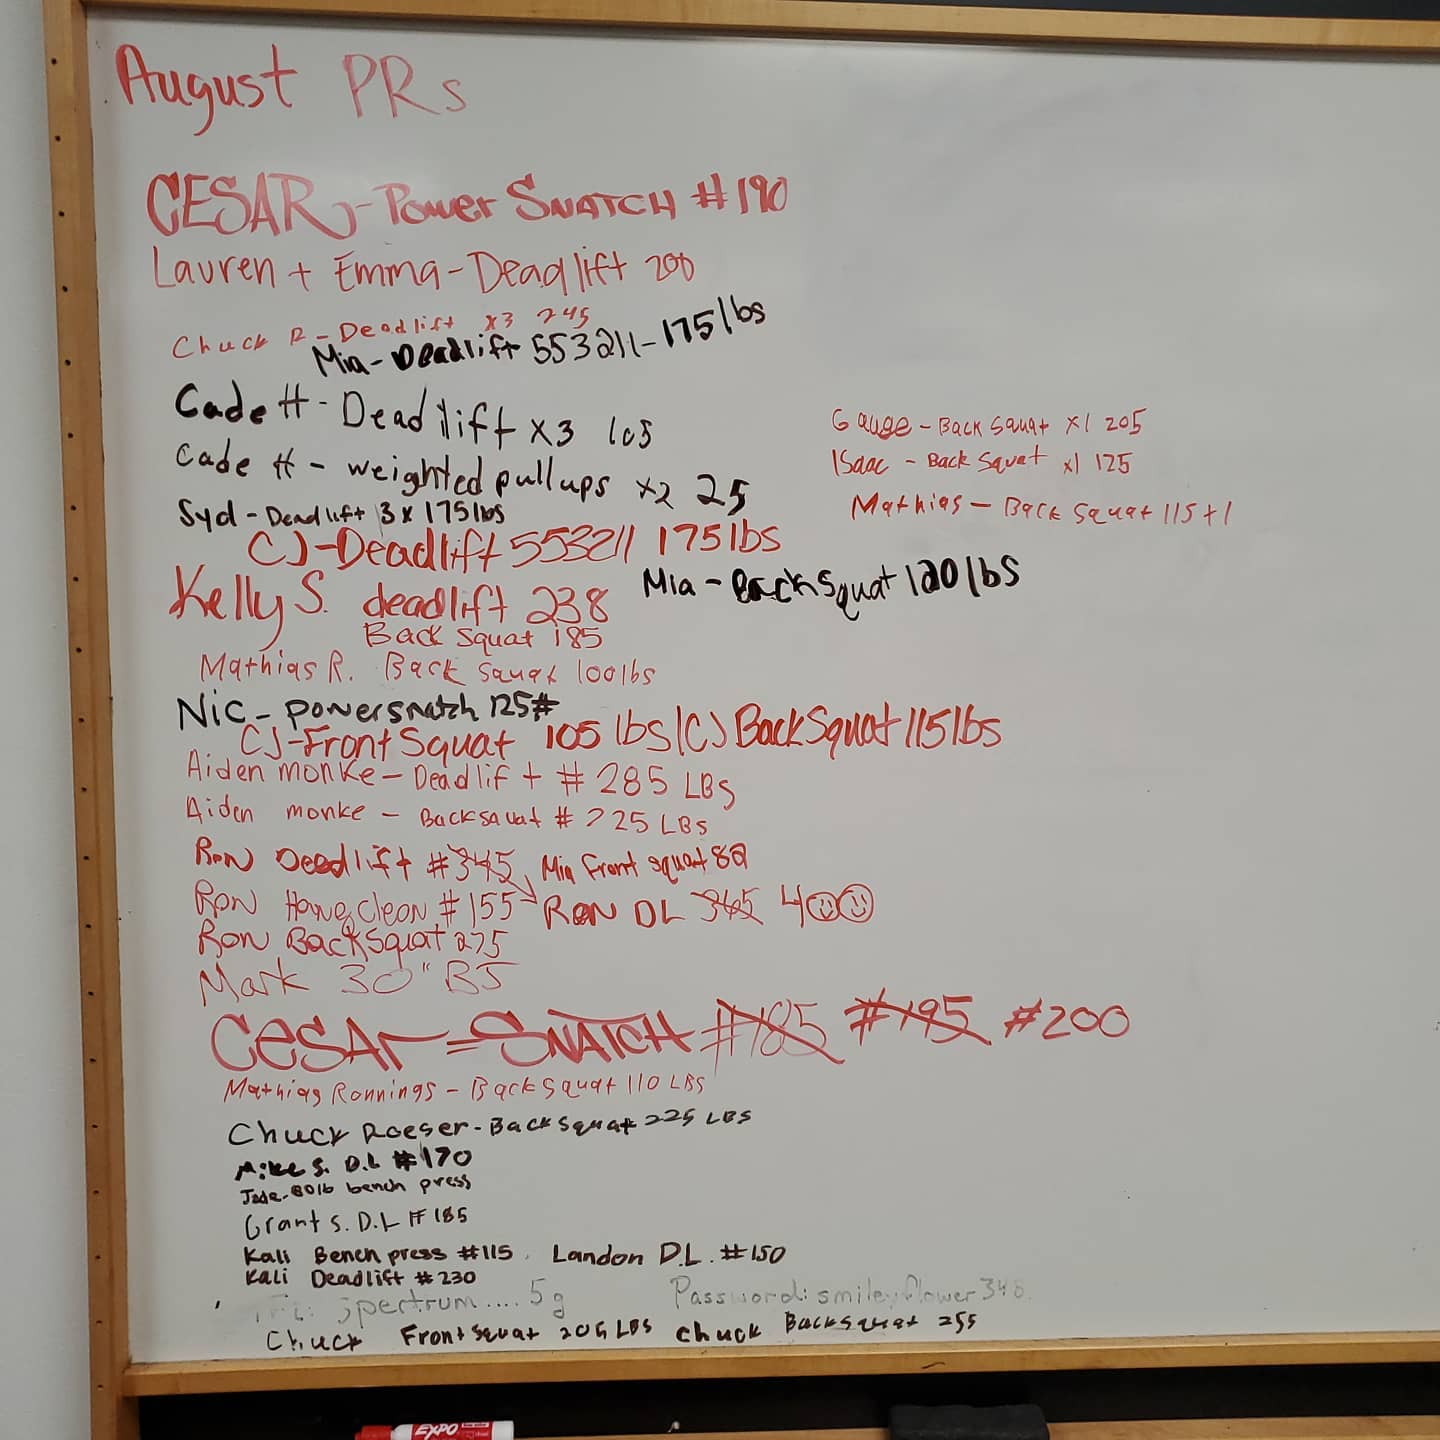 August PRs
CESAR - Power SNATCH #190
Lauren + Emma - Deadlift 200
Chuck R - Deadlift x3 245
Mia - Deadlift 553211 - 175 lbs
Cade H - Deadlift x3 165
Cade H - weighted pull ups x2 25
Syd - Deadlift 3 x 175 lbs
CJ - Deadlift 553211 175 lbs
Gauge - Back Squat x1 205
ISaac - Back Squat x1 125
Mathias - Back Squat 115 +1
Kelly S. deadlift 238
Back Squat 185
Mia - Back Squat 120 lbs
Mathias R. Back Squat 100 lbs
Nic - power snatch 125#
CJ - Front Squat 105 lbs | CJ Back Squat 115 lbs
Aiden monke - Deadlift # 285 LBS
Aiden monke - Backsquat # 225 LBS
Ron Deadlift #345 Mia Front squat 80
Ron Hang Clean #155 Ron DL 365 400
Ron Back Squat 275
Mark 30" BJ
CESAr = SNATCH #185 #195 #200
Mathias Ronnings - Back Squat 110 LBS
Chuck Roeser - Back Squat 225 LBS
Mike S. D.L #170
Jade - 80lb bench press
Grant S. D.L # 185
Kali Bench press #115 Landon D.L. #150
Kali Deadlift #230
spectrum .... 5g Password: smileyflower
Chuck Front Squat 205 LBS Chuck Back Squat 255
EXPO